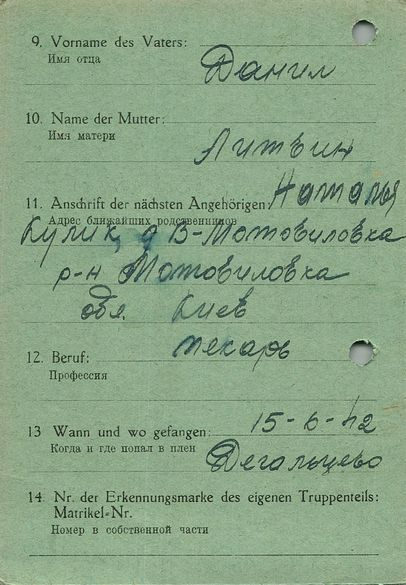 9. Vorname des Vaters:
Имя отца
Данил
10. Name der Mutter:
Имя матери
Литвин
11. Anschrift der nächsten Angehörigen: Наталья
Адрес ближайших родственников
Кулик, д В-Мотовиловка
р-н Мотовиловка
обл. Киев
12. Beruf: пекарь
Профессия
13 Wann und wo gefangen: 15-6-42
Когда и где попал в плен
Дегальцево
14. Nr. der Erkennungsmarke des eigenen Truppenteils:
Matrikel-Nr.
Номер в собственной части